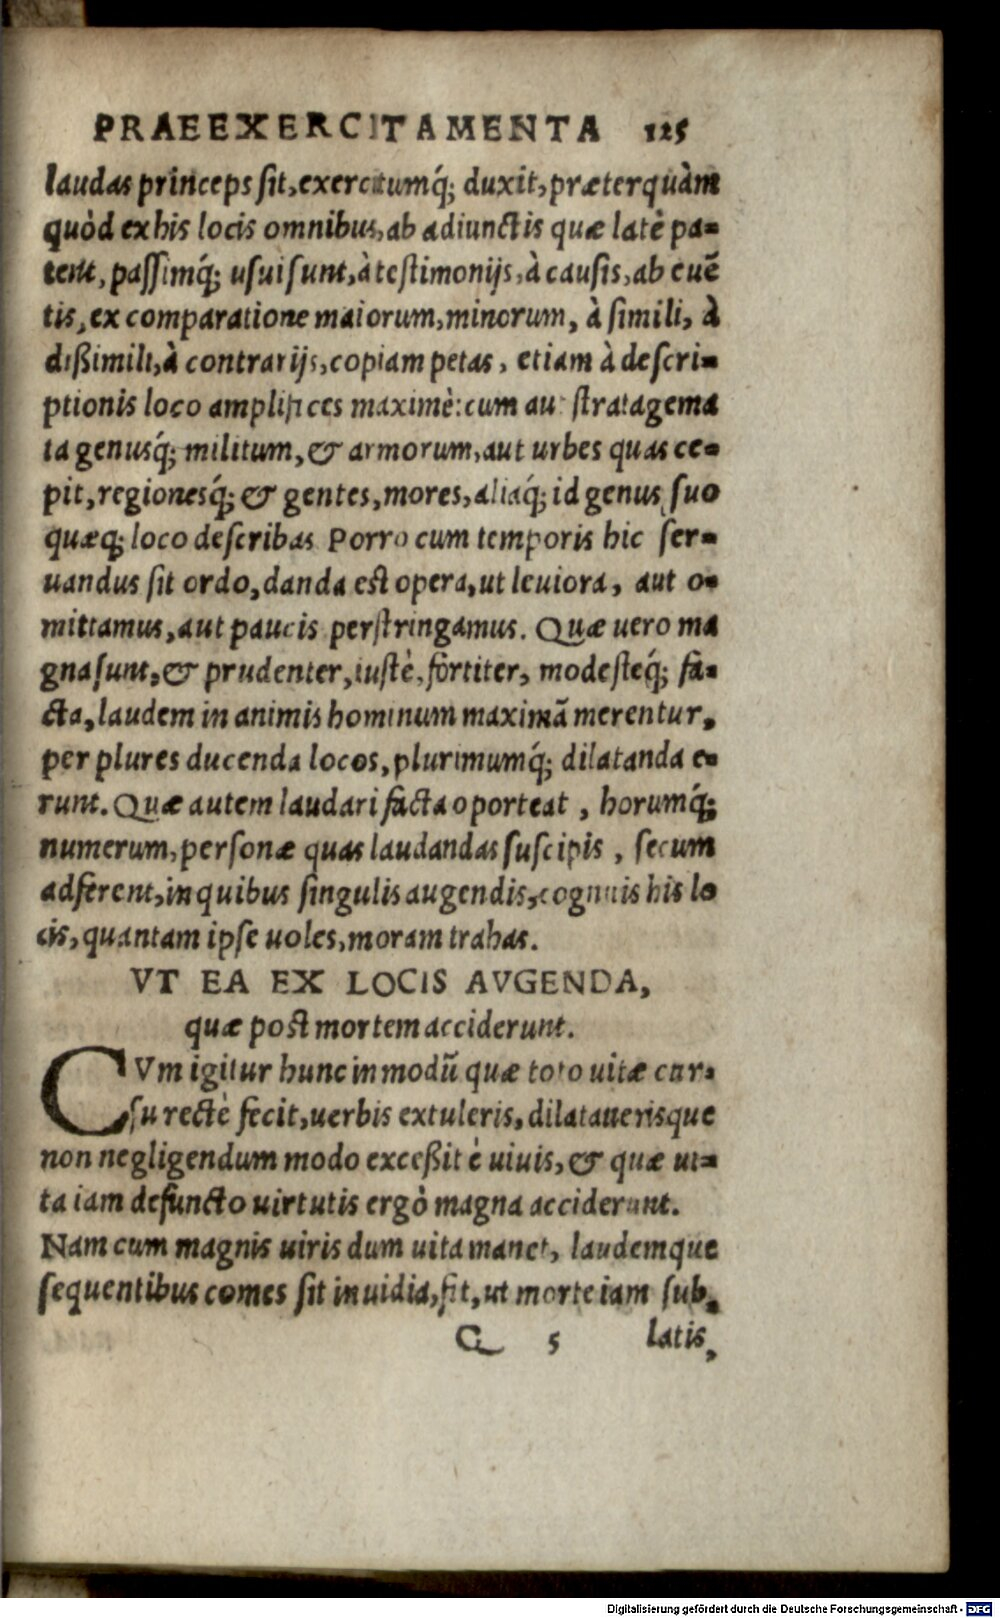 PRAEEXERCITAMENTA 125
laudas princeps sit, exercitumq́; duxit, præterquàm
quòd ex his locis omnibus, ab adiunctis quæ latè pa-
tent, passimq́; usui sunt, à testimonijs, à causis, ab euẽ
tis, ex comparatione maiorum, minorum, à simili, à
dißimili, à contrarijs, copiam petas, etiam à descri-
ptionis loco amplifices maximè: cum aut stratagema
ta genusq́; militum, & armorum, aut urbes quas ce-
pit, regionesq́; & gentes, mores, aliaq́; id genus suo
quæq; loco describas Porro cum temporis hic ser-
uandus sit ordo, danda est opera, ut leuiora, aut o-
mittamus, aut paucis perstringamus. Quæ uero ma
gna sunt, & prudenter, iustè, fortiter, modesteq́; fa-
cta, laudem in animis hominum maximã merentur,
per plures ducenda locos, plurimumq́; dilatanda e-
runt. Quæ autem laudari facta oporteat, horumq́;
numerum, personæ quas laudandas suscipis, secum
adferent, in quibus singulis augendis, cognitis his lo
cis, quantam ipse uoles, moram trahas.
VT EA EX LOCIS AVGENDA,
quæ post mortem acciderunt.
CVm igitur hunc in modũ quæ toto uitæ cur-
su rectè fecit, uerbis extuleris, dilataueris que
non negligendum modo exceßit è uiuis, & quæ ui-
ta iam defuncto uirtutis ergò magna acciderunt.
Nam cum magnis uiris dum uita manet, laudemque
sequentibus comes sit inuidia, fit, ut morte iam sub-
Q 5 latis,
Digitalisierung gefördert durch die Deutsche Forschungsgemeinschaft - DFG